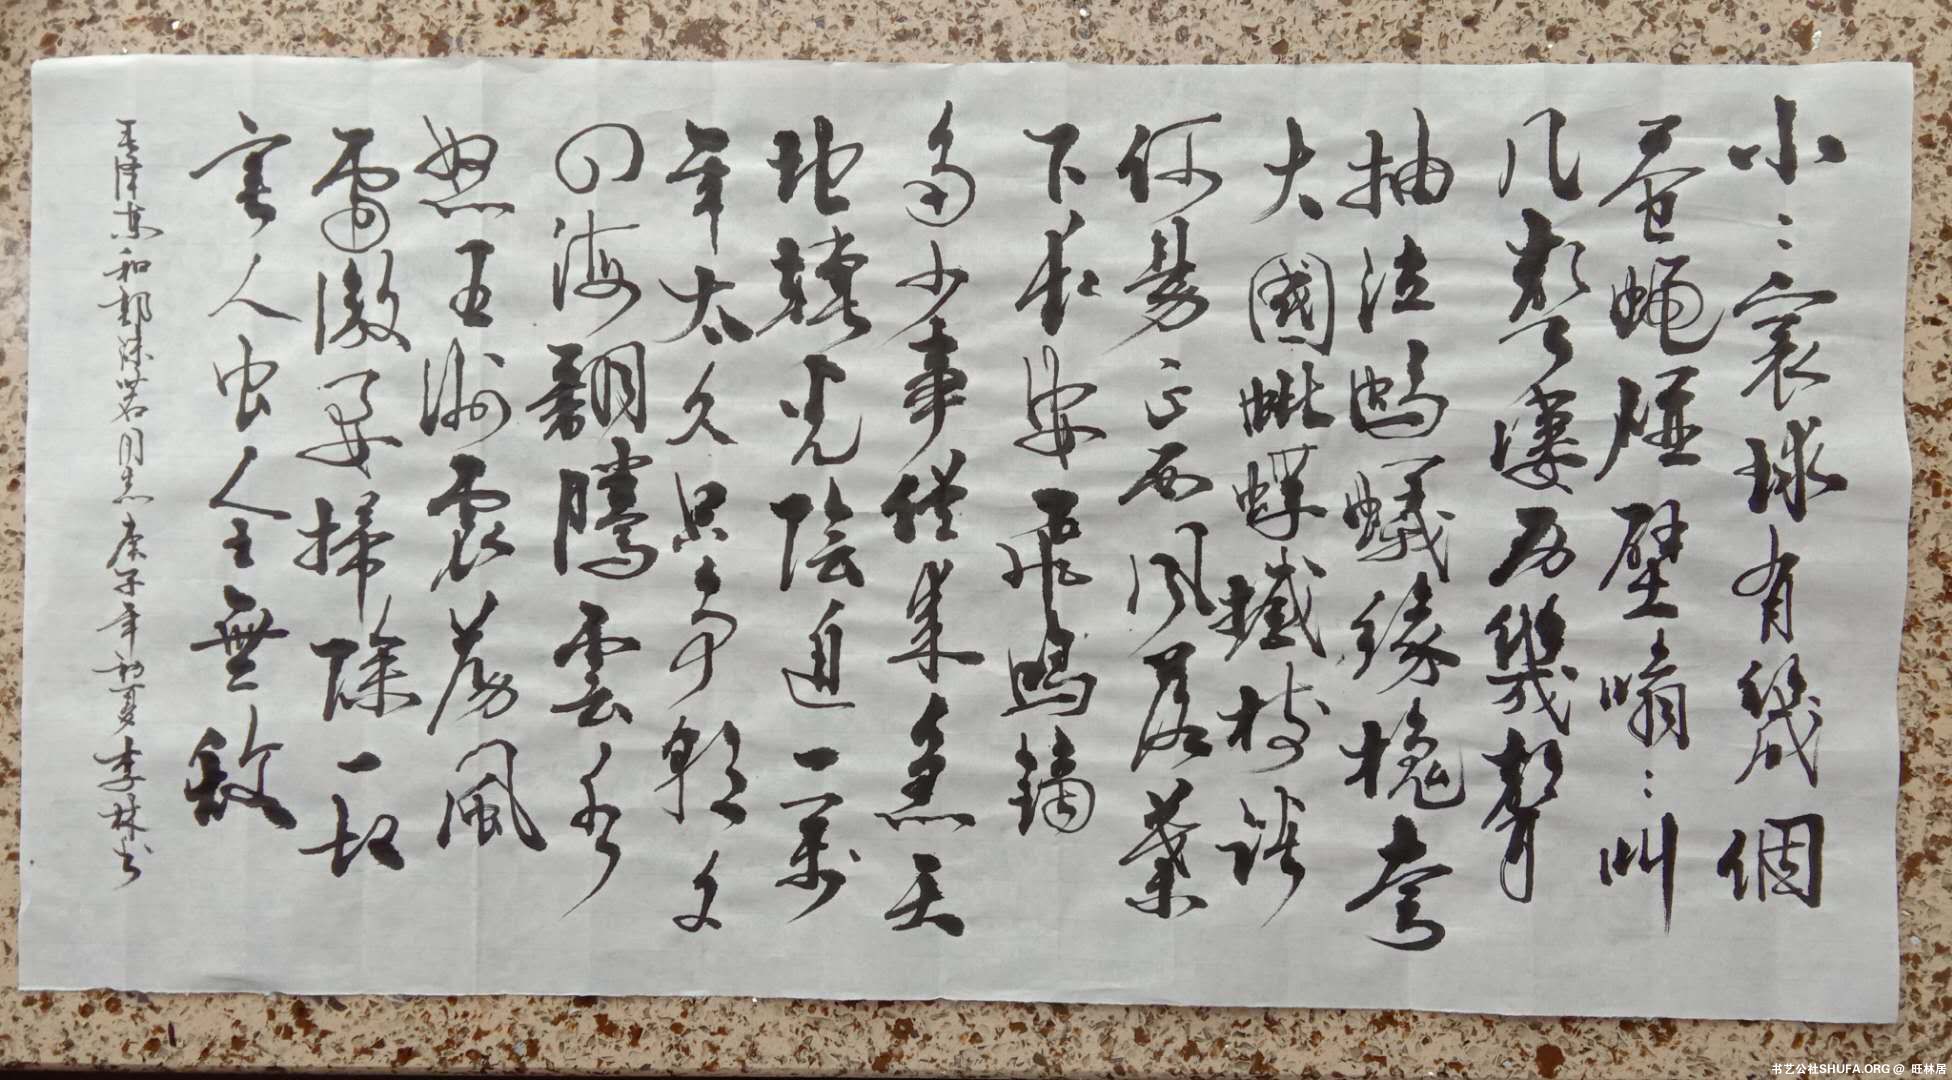 小〻寰球有幾個
蒼蠅碰壁嗡〻叫
几聲凄厉幾聲
抽泣螞蟻緣槐夸
大國蚍蜉撼樹談
何易正西風落葉
下長安飛鳴鏑
多少事從來急天
地轉光陰迫一萬
年太久只争朝夕
四海翻騰雲水
怒五洲震荡風
雷激要掃除一切
害人虫全無敵
毛澤东和郭沫若同志庚子年初夏李林书
书艺公社SHUFA.ORG @ 旺林居